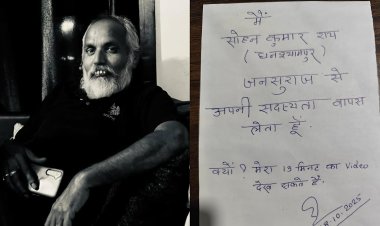 मैं
सोहन कुमार राय
(घनश्यामपुर)
जनसुराज से
अपनी सदस्यता वापस
लेता हूँ.
क्यों? मेरा 13 मिनट का Video
देख सकते हैं.
8-10-2025